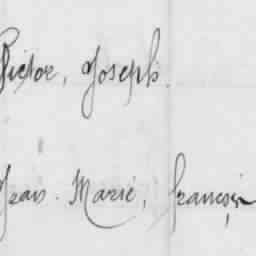 Victor, Joseph.
Jean. Marie, François